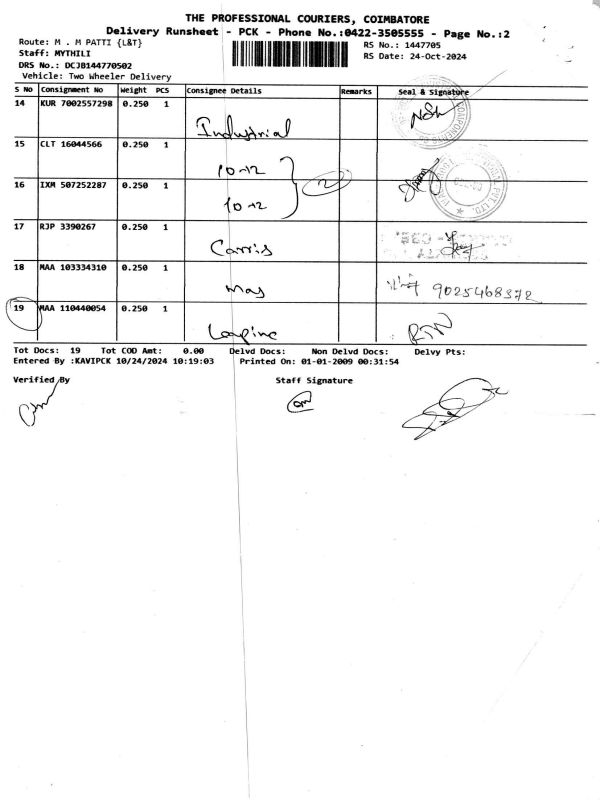 THE PROFESSIONAL COURIERS, COIMBATORE
Delivery Runsheet - PCK - Phone No.:0422-3505555 - Page No.:2
Route: M . M PATTI {L&T} RS No.: 1447705
Staff: MYTHILI RS Date: 24-Oct-2024
DRS No.: DCJB144770502
Vehicle: Two Wheeler Delivery
S No Consignment No Weight PCS Consignee Details Remarks Seal & Signature
14 KUR 7002557298 0.250 1
Industrial
15 CLT 16044566 0.250 1
10-12
16 IXM 507252287 0.250 1 2
10-12
17 RJP 3390267 0.250 1
Carris
18 MAA 103334310 0.250 1
May 9025468372
19 MAA 110440054 0.250 1
RTN
Tot Docs: 19 Tot COD Amt: 0.00 Delvd Docs: Non Delvd Docs: Delvy Pts:
Entered By :KAVIPCK 10/24/2024 10:19:03 Printed On: 01-01-2009 00:31:54
Verified By Staff Signature